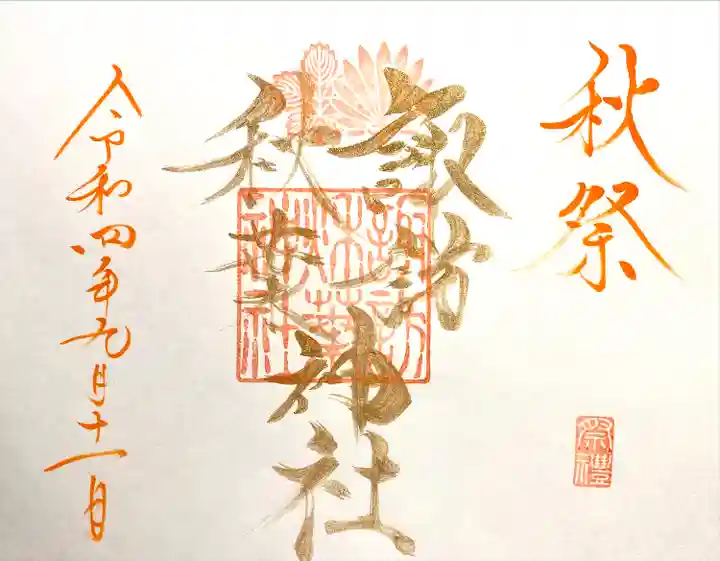 秋祭
祭禮
諏訪
秋葉
神社
諏訪
秋葉
神社
令和四年九月十一日